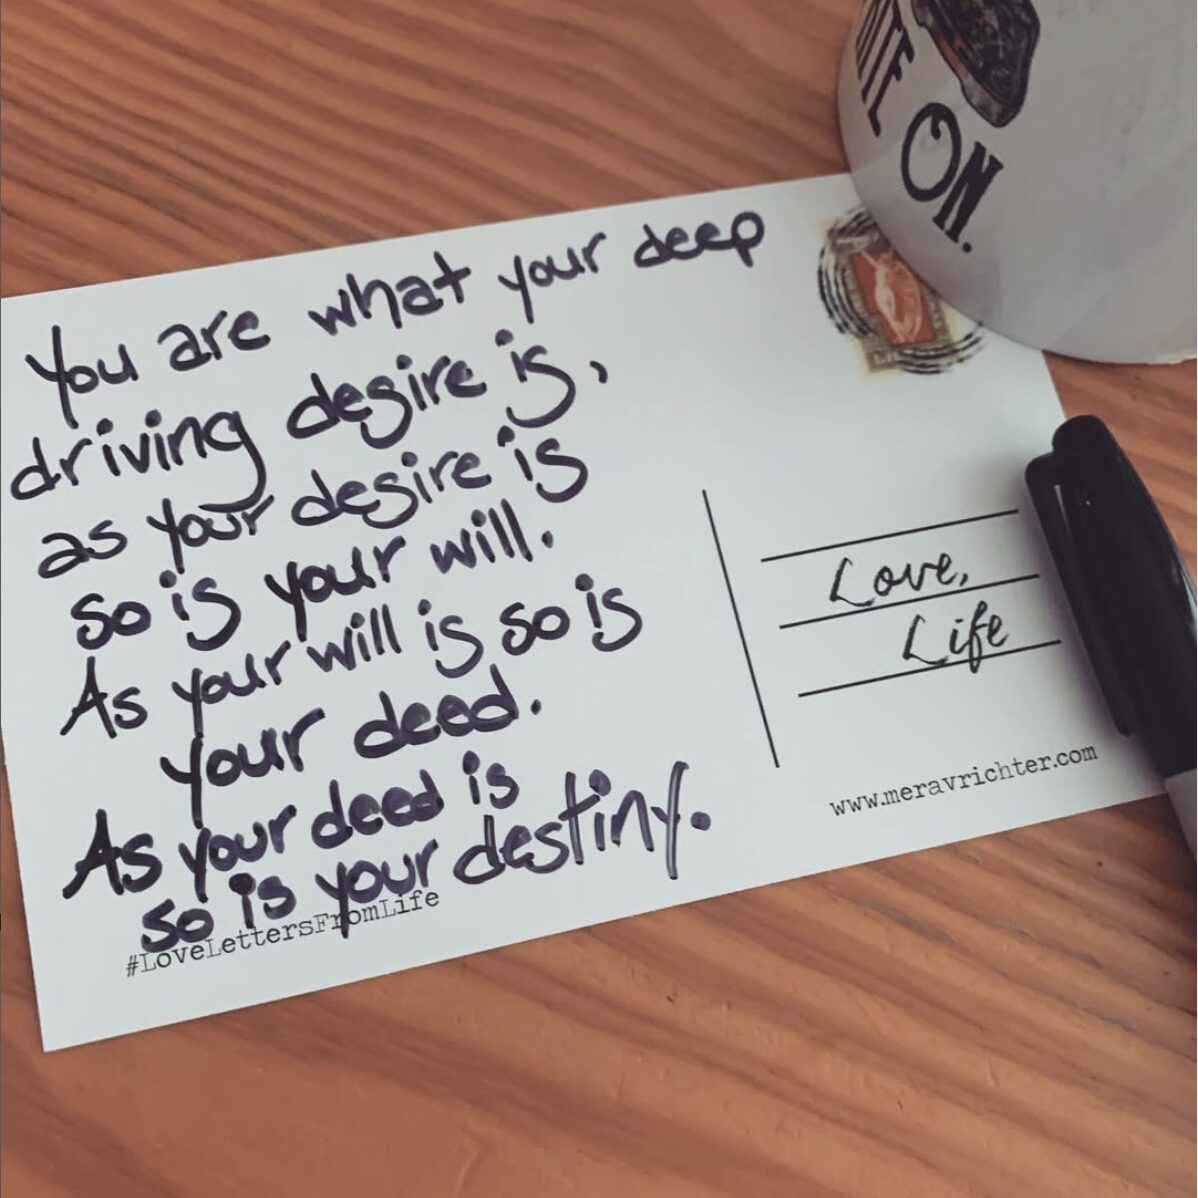 You are what your deep
driving desire is,
as your desire is
so is your will.
As your will is so is
your deed.
As your deed is
so is your destiny.
#LoveLettersFromLife
Love,
Life
www.meravrichter.com
ON.